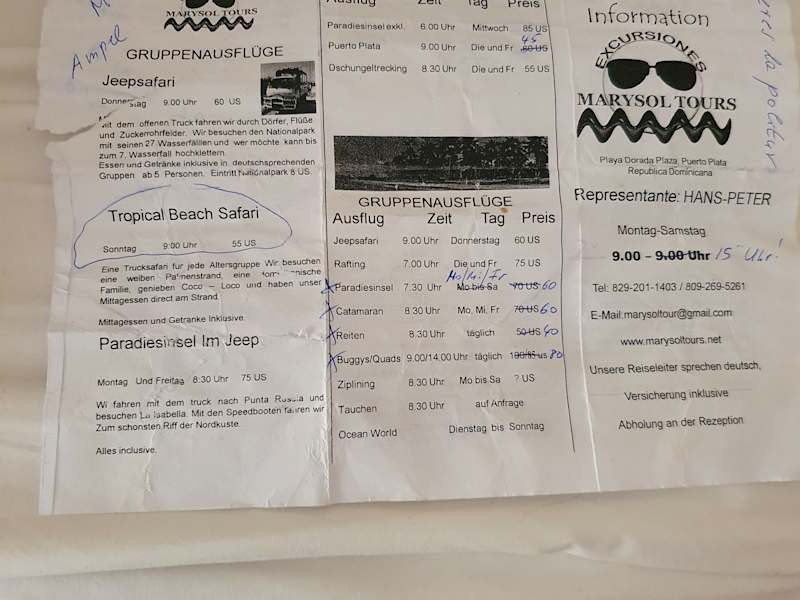 Ampel
MARYSOL TOURS
GRUPPENAUSFLÜGE
Jeepsafari
9.00 Uhr 60 US
dem offenen Truck fahren wir durch Dörfer, Flüße
und Zuckerrohrfelder. Wir besuchen den Nationalpark
mit seinen 27 Wasserfällen und wer möchte kann bis
zum 7. Wasserfall hochklettern.
Essen und Getränke inklusive in deutschsprechenden
Gruppen ab 5 Personen. Eintritt Nationalpark 8 US.
Tropical Beach Safari
Sonntag 9:00 Uhr 55 US
Eine Trucksafari für jede Altersgruppe Wir besuchen
eine weiben Palmenstrand, eine
Familie, genieben Coco – Loco und haben unser
Mittagessen direct am Strand.
Mittagessen und Getranke Inklusive.
Paradiesinsel Im Jeep
Montag Und Freitag 8:30 Uhr 75 US
Wi fahren mit dem truck nach Punta Rusia und
besuchen La Isabella. Mit den Speedbooten fahren wir
Zum schonsten Riff der Nordkuste.
Alles inclusive.
Ausflug Zeit Tag Preis
Paradiesinsel exkl. 6.00 Uhr Mittwoch 85 US
45
Puerto Plata 9.00 Uhr Die und Fr 60 US
Dschungeltrecking 8.30 Uhr Die und Fr 55 US
GRUPPENAUSFLÜGE
Ausflug Zeit Tag Preis
Jeepsafari 9.00 Uhr Donnerstag 60 US
Rafting 7.00 Uhr Die und Fr 75 US
Mo/Mi/Fr
x Paradiesinsel 7.30 Uhr Mo bis Sa 70 US 60
x Catamaran 8.30 Uhr Mo, Mi, Fr 70 US 60
x Reiten 8.30 Uhr täglich 50 US 40
x Buggys/Quads 9.00/14.00 Uhr täglich 100/85 us 80
Ziplining 8.30 Uhr Mo bis Sa ? US
Tauchen 8.30 Uhr auf Anfrage
Ocean World Dienstag bis Sonntag
Information
EXCURSIONES
MARYSOL TOURS
Playa Dorada Plaza, Puerto Plata
Republica Dominicana
Representante: HANS-PETER
Montag-Samstag
9.00 – 9.00 Uhr 15 Uhr!
Tel: 829-201-1403 / 809-269-5261
E-Mail:marysoltour@gmail.com
www.marysoltours.net
Unsere Reiseleiter sprechen deutsch,
Versicherung inklusive
Abholung an der Rezeption